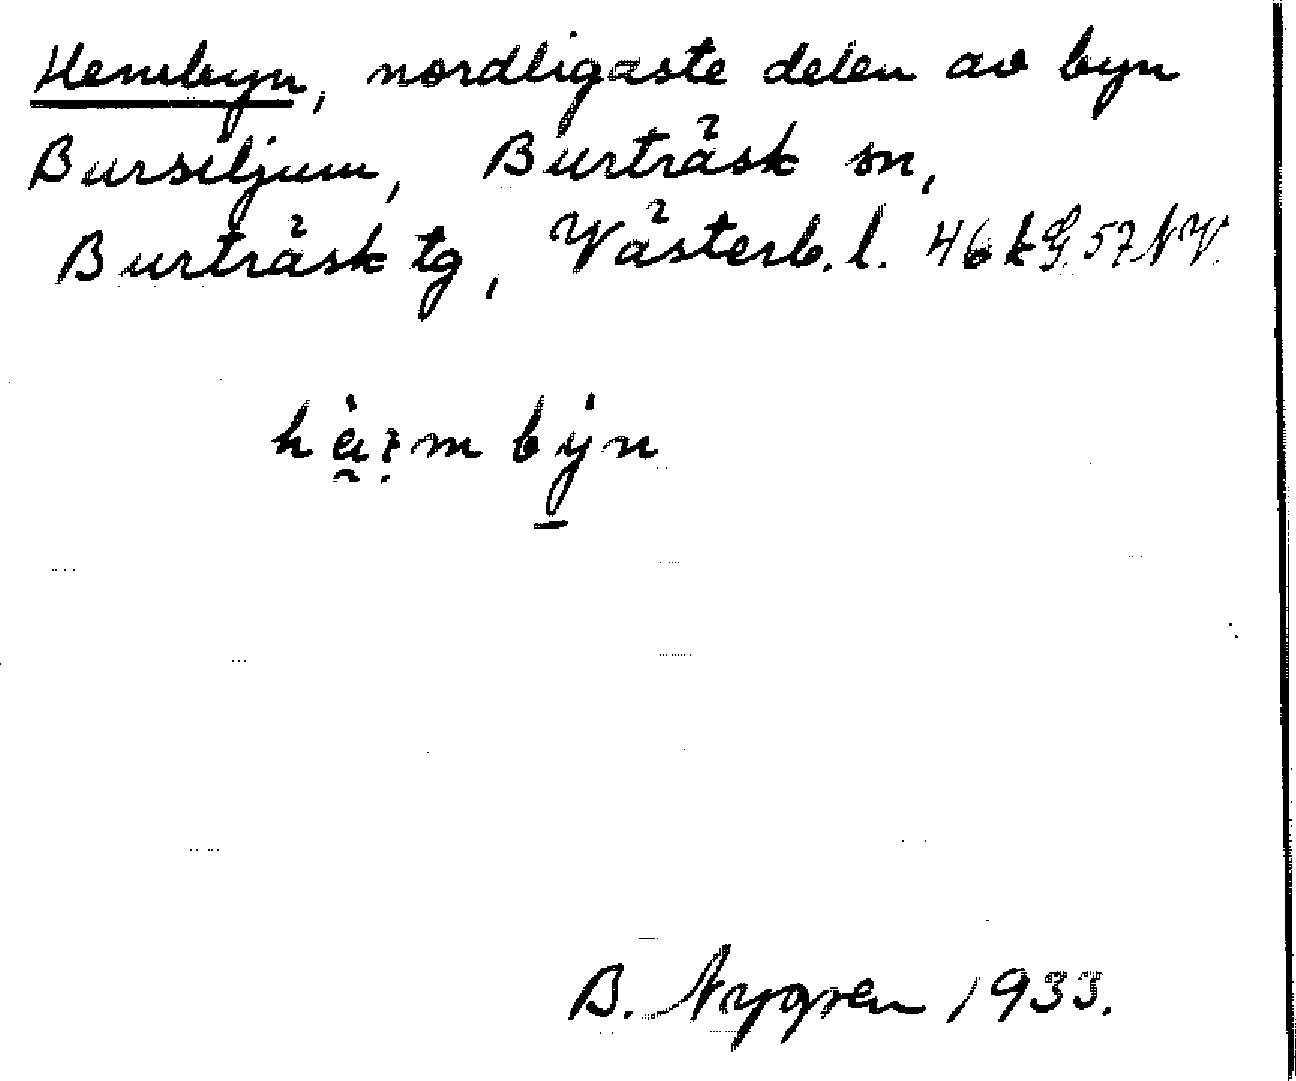 Hembyn, nordligaste delen av byn
Bursiljum, Burträsk sn,
Burträsk tg, Västerb. l. 46 k S. 57 NV.
byn
B. Nygren 1933.